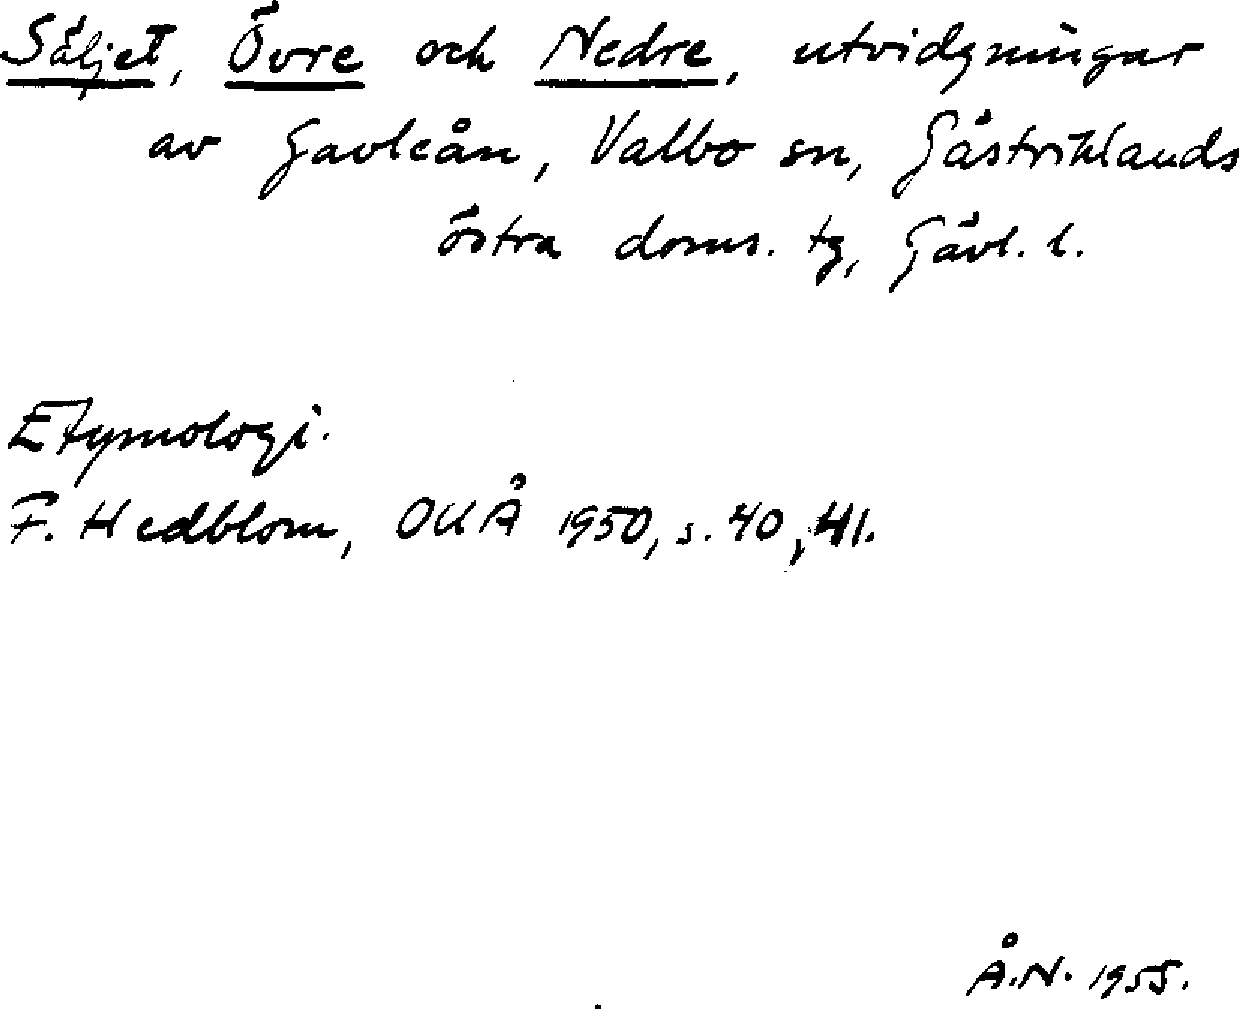 Säljet, Övre och Nedre, utvidgningar
av Gavleån, Valbo sn, Gästriklands
östra doms. tg, Gävl. l.
Etymologi.
F. Hedblom, OUÅ 1950, s. 40, 41.
Å.N. 1955.